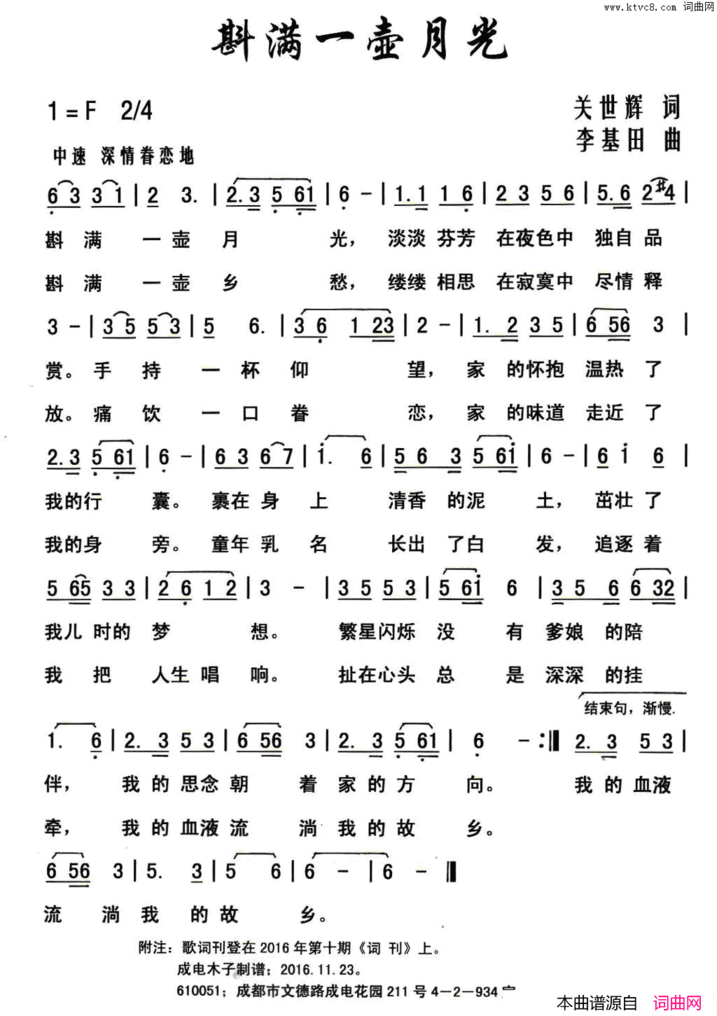 www.ktvc8.com 词曲网
斟满一壶月光
1=F 2/4
关世辉 词
李基田 曲
中速 深情眷恋地
6 3 3 1 | 2 3. | 2.3 5 61 | 6 - | 1.1 1 6 | 2 3 5 6 | 5.6 2 #4 |
斟 满 一 壶 月 光， 淡淡 芬芳 在夜色中 独自 品
斟 满 一 壶 乡 愁， 缕缕 相思 在寂寞中 尽情 释
3 - | 3 5 5 3 | 5 6. | 3 6 1 23 | 2 - | 1. 2 3 5 | 6 56 3 |
赏。 手 持 一 杯 仰 望， 家 的怀抱 温热 了
放。 痛 饮 一 口 眷 恋， 家 的味道 走近 了
2.3 5 61 | 6 - | 6 3 6 7 | i. 6 | 5 6 3 5 6i | 6 - | 6 i 6 |
我的行 囊。 裹在 身 上 清香 的泥 土， 茁壮 了
我的身 旁。 童年 乳 名 长出 了白 发， 追逐 着
5 65 3 3 | 2 6 1 2 | 3 - | 3 5 5 3 | 5 6i 6 | 3 5 6 32 |
我儿 时的 梦 想。 繁星闪烁 没 有 爹娘 的陪
我 把 人生 唱 响。 扯在心头 总 是 深深 的挂
结束句，渐慢.
1. 6 | 2. 3 5 3 | 6 56 3 | 2. 3 5 61 | 6 - :‖ 2. 3 5 3 |
伴， 我 的 思念 朝 着 家 的 方 向。 我 的 血液
牵， 我 的 血液 流 淌 我 的 故 乡。
6 56 3 | 5. 3 | 5 6 | 6 - | 6 - ‖
流 淌 我 的 故 乡。
附注：歌词刊登在2016年第十期《词 刊》上。
成电木子制谱；2016.11.23。
610051；成都市文德路成电花园211号4-2-934
本曲谱源自 词曲网